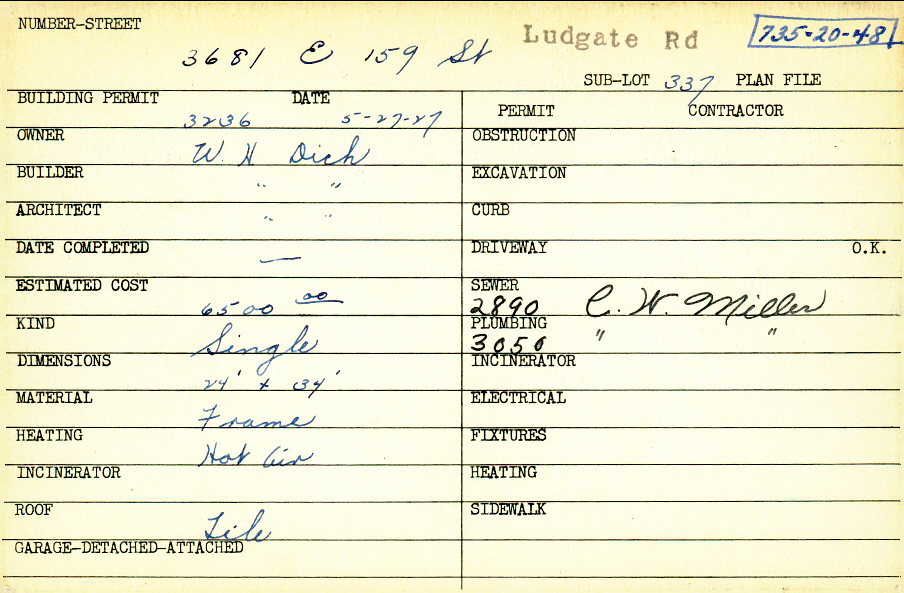 NUMBER-STREET
3681 E 159 St Ludgate Rd 735-20-48
SUB-LOT 337 PLAN FILE
BUILDING PERMIT DATE
3236 5-27-27
PERMIT CONTRACTOR
OWNER W. H Dich
OBSTRUCTION
BUILDER " "
EXCAVATION
ARCHITECT " "
CURB
DATE COMPLETED —
DRIVEWAY O.K.
ESTIMATED COST 6500 00
SEWER
2890 C. W. Miller
KIND Single
PLUMBING
3050 " "
DIMENSIONS 24' x 34'
INCINERATOR
MATERIAL Frame
ELECTRICAL
HEATING Hot Air
FIXTURES
INCINERATOR
HEATING
ROOF Tile
SIDEWALK
GARAGE-DETACHED-ATTACHED